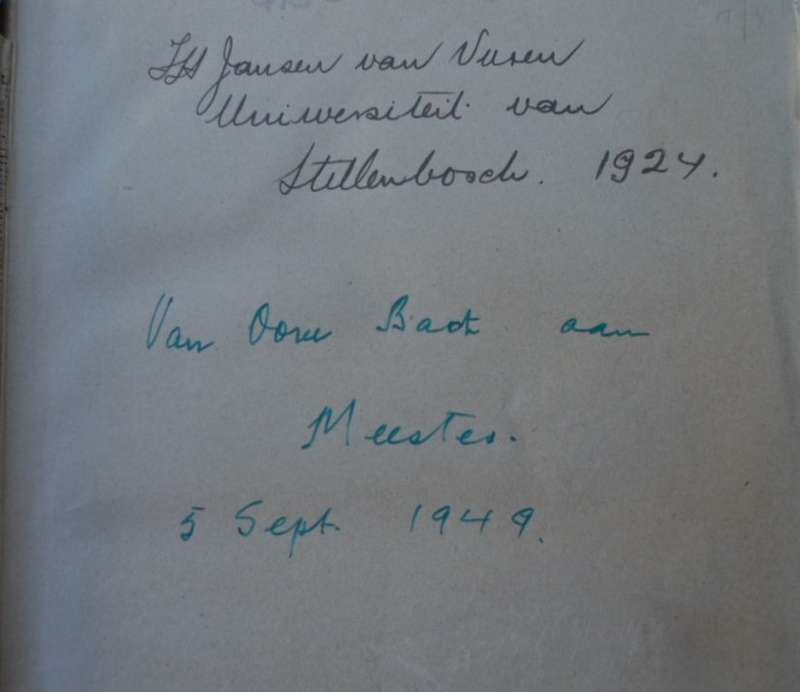 Jansen van Vuren
Universiteit van
Stellenbosch. 1924.
Van Oom Bach aan
Meester.
5 Sept. 1949.